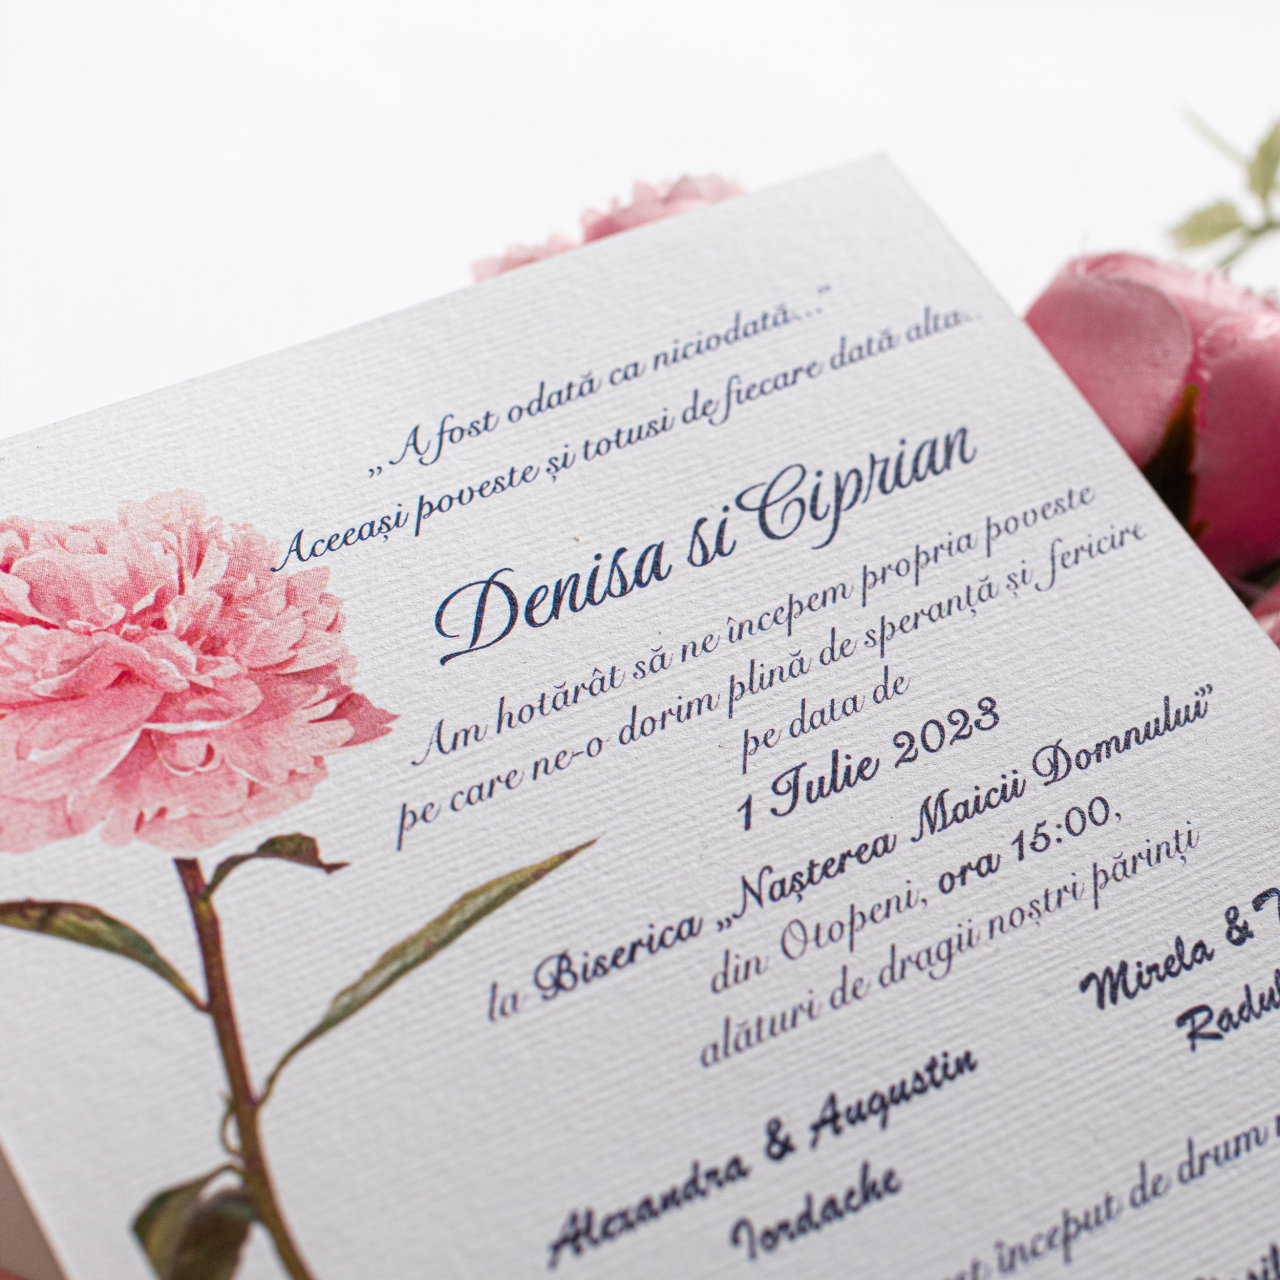 „A fost odată ca niciodată...“
Aceeași poveste și totusi de fiecare dată alta..
Denisa si Ciprian
Am hotărât să ne începem propria poveste
pe care ne-o dorim plină de speranță și fericire
pe data de
1 Iulie 2023
la Biserica „Nașterea Maicii Domnului”
din Otopeni, ora 15:00,
alături de dragii noștri părinți
Mirela &
Alexandra & Augustin
Iordache
început de drum